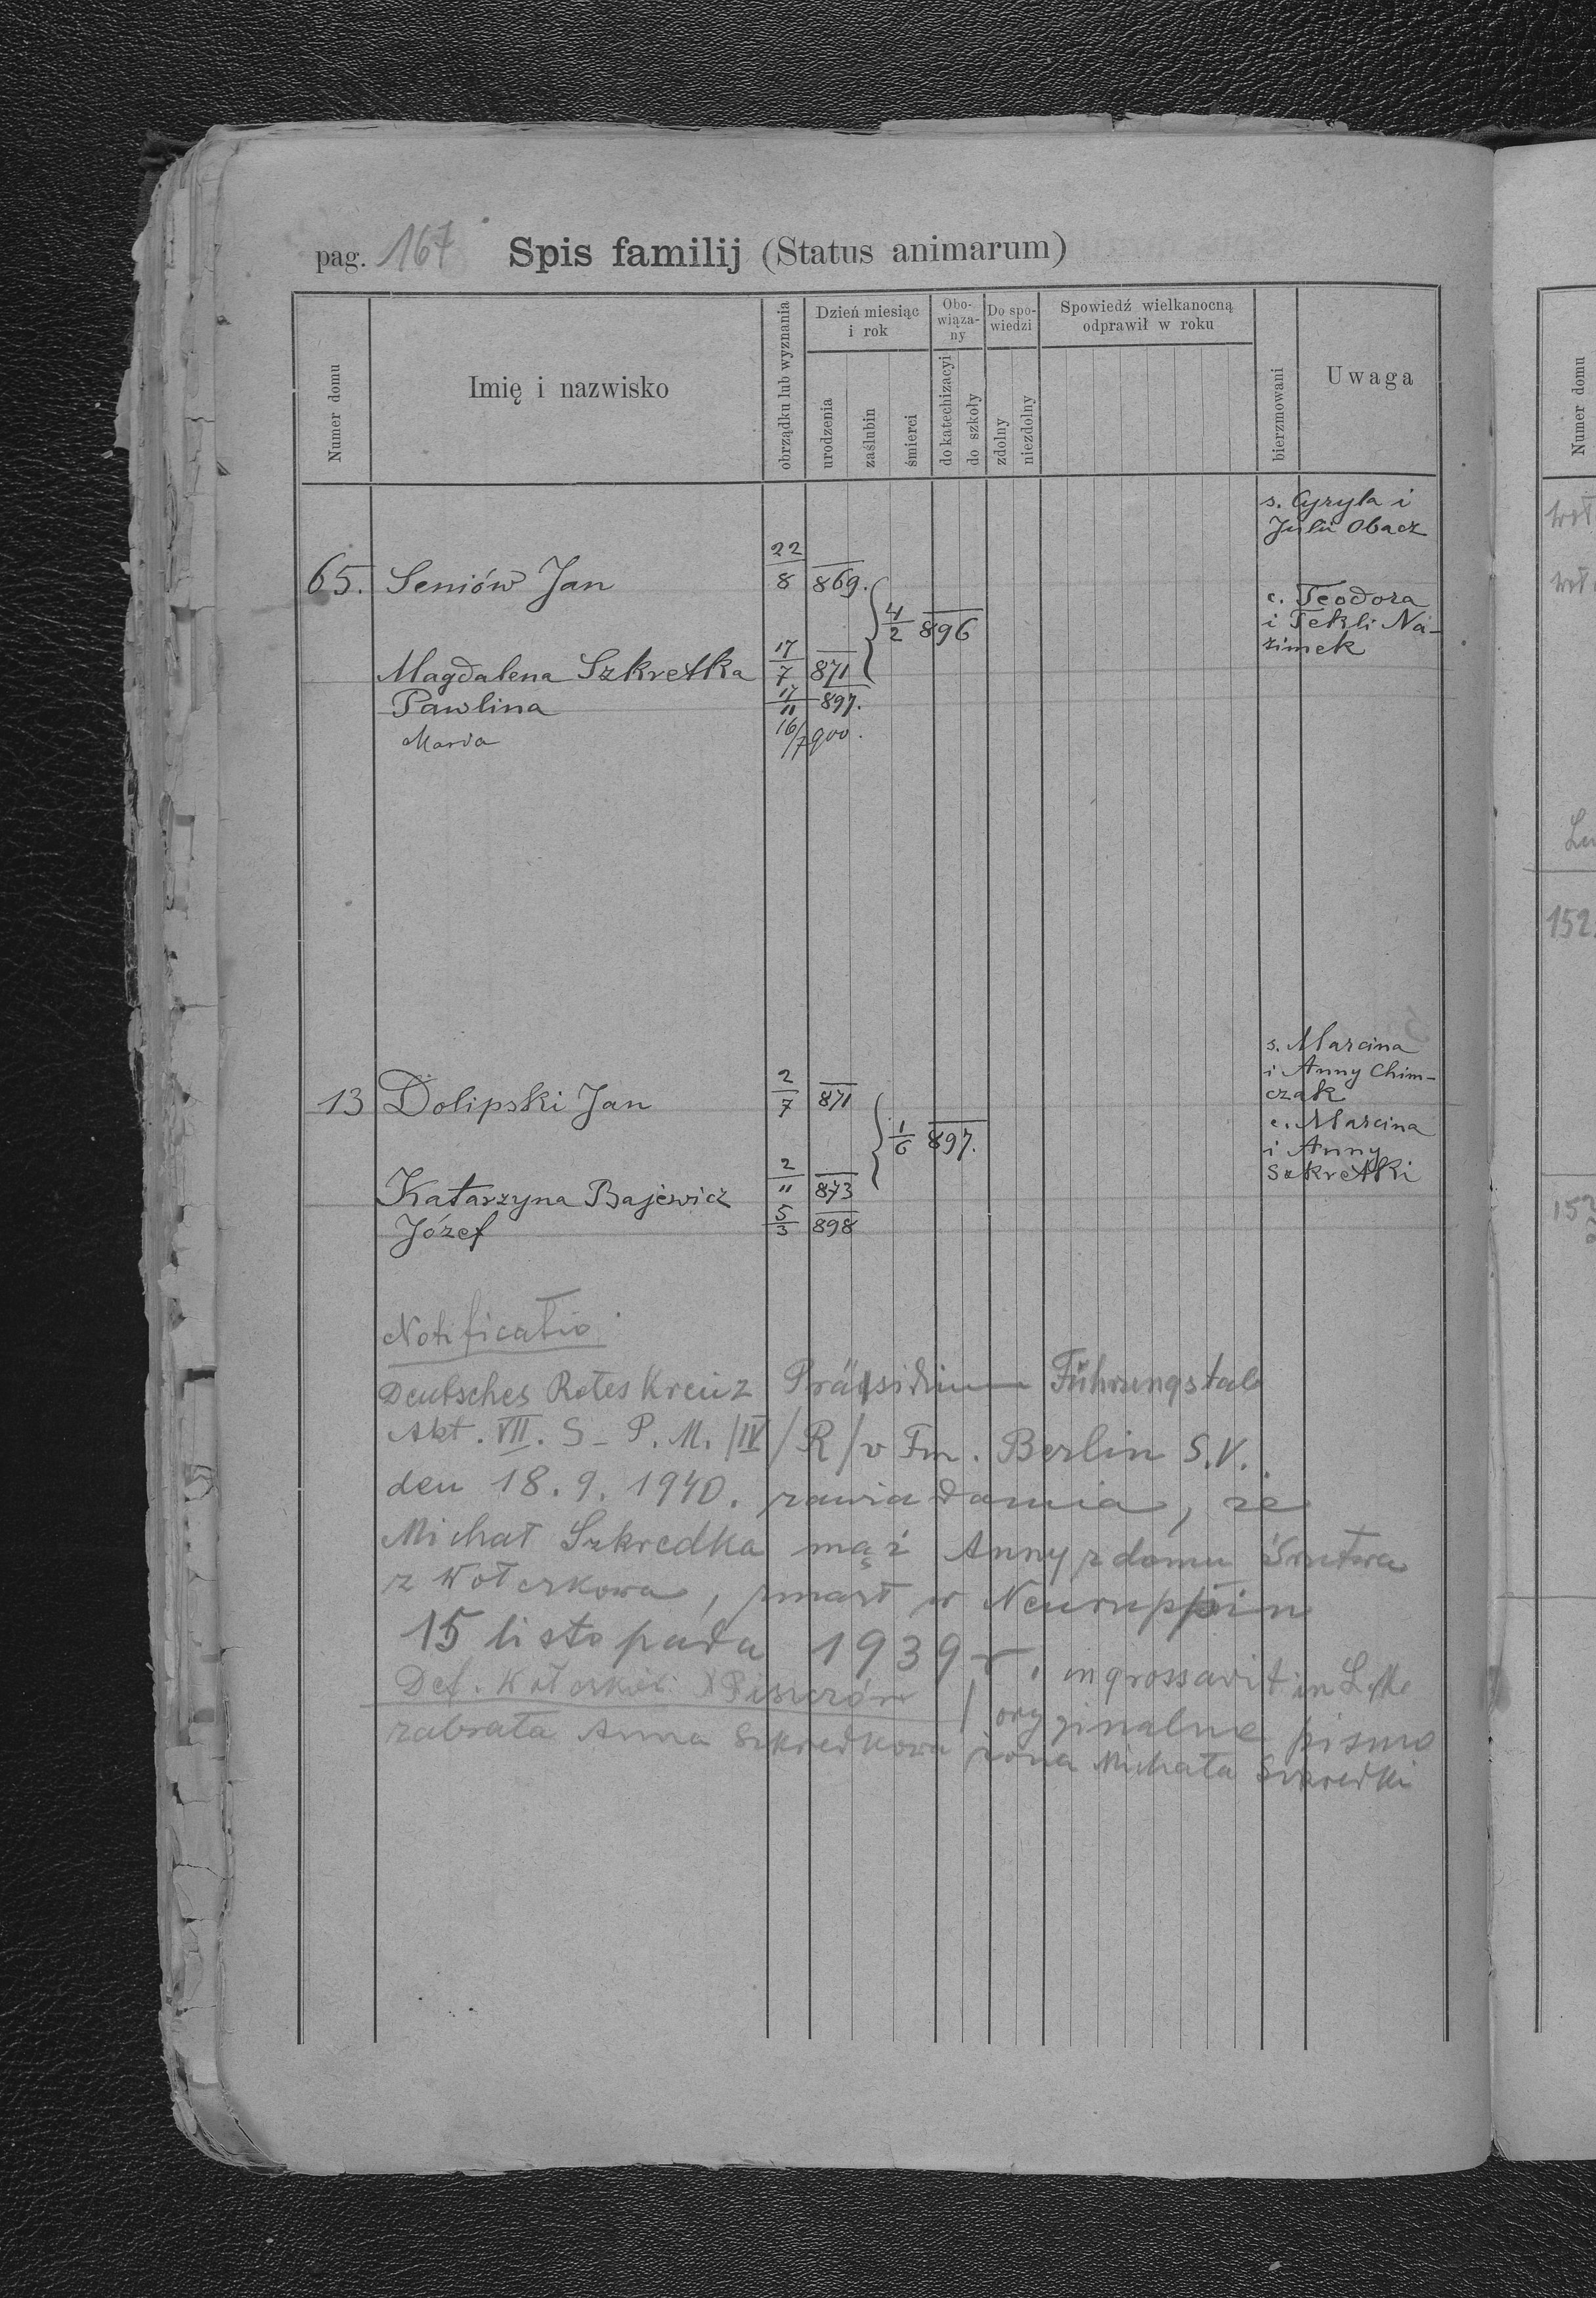 pag. 167 Spis familij (Status animarum)
Numer domu
Imię i nazwisko
obrządku lub wyznania
Dzień miesiąc i rok
urodzenia
zaślubin
śmierci
Obo-
wiąza-
ny
do katechizacyi
do szkoły
Do spo-
wiedzi
zdolny
niezdolny
Spowiedź wielkanocną
odprawił w roku
bierzmowani
Uwaga
s. Cyryla i
Julii Obacz
65. Seniów Jan 22/8 869.
4/2 896
c. Teodora
i Tekli Na-
zimek
Magdalena Szkretka 17/7 871
Pawlina 17/11 897.
Maria 16/7 900.
s. Marcina
i Anny Chim-
czak
13 Dolipski Jan 2/7 871
1/6 897.
c. Marcina
i Anny
Szkretki
Katarzyna Bajewicz 2/11 873
Józef 5/3 898
Notificatio
Deutsches Rotes Kreuz Präsidium Führungstab
Akt. VII. S - P. M. /IV/ R/v Fm. Berlin S.V.
den 18. 9. 1940. zawiadamia, że
Michał Szkredka mąż Anny z domu
z Wołczkowa, zmarł w Neuruppin
15 listopada 1939 r. ingrossavit in L. M
oryginalne pismo
zabrała Anna Szkredkowa żona Michała Szkredki
Numer domu
152